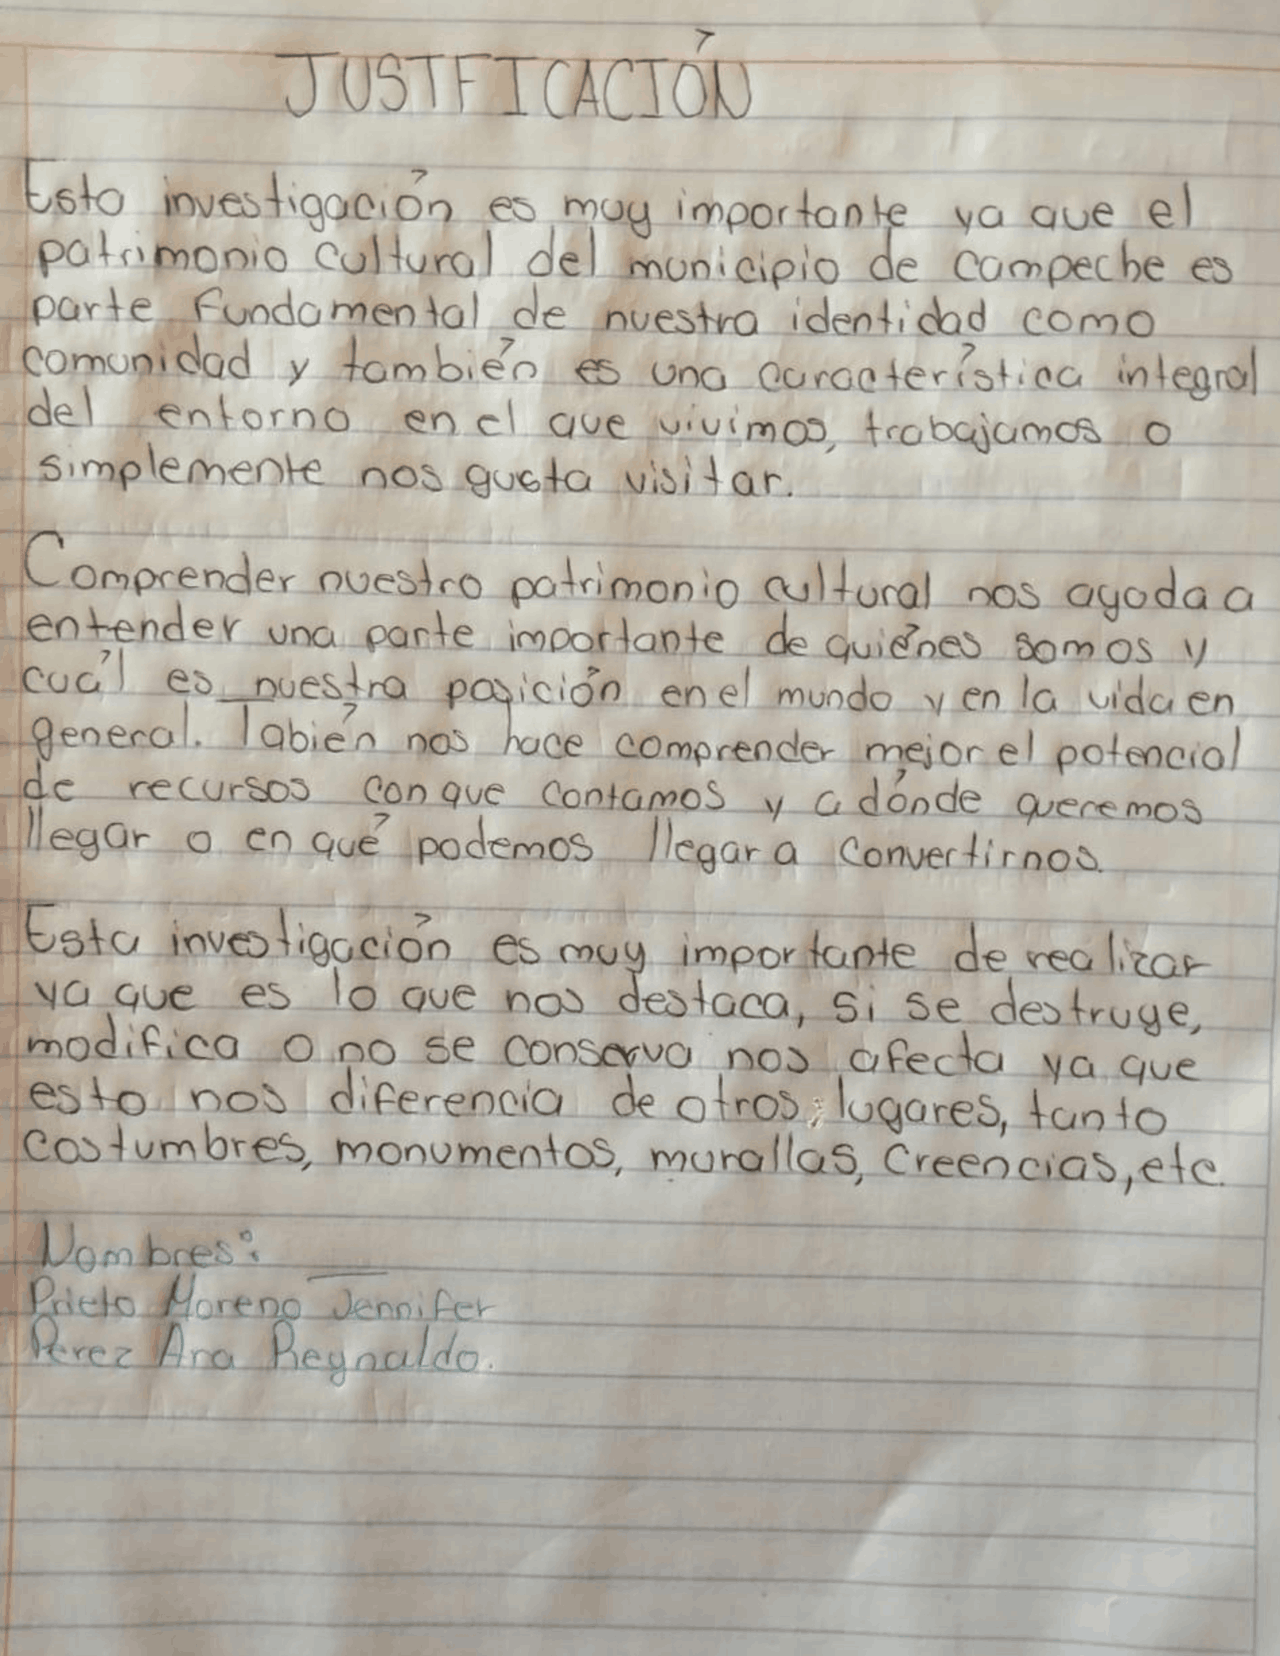 JUSTFICACIÓN
Esta investigación es muy importante ya que el
patrimonio cultural del municipio de campeche es
parte fundamental de nuestra identidad como
comunidad y también es una característica integral
del entorno en el que vivimos, trabajamos o
simplemente nos gusta visitar.
Comprender nuestro patrimonio cultural nos ayuda a
entender una parte importante de quiénes somos y
cuál es nuestra posición en el mundo y en la vida en
general. Tabién nos hace comprender mejor el potencial
de recursos con que contamos y a dónde queremos
llegar o en qué podemos llegar a convertirnos.
Esta investigación es muy importante de realizar
ya que es lo que nos destaca, si se destruye,
modifica o no se conserva nos afecta ya que
esto nos diferencia de otros lugares, tanto
costumbres, monumentos, murallas, creencias, etc.
Nombres:
Prieto Moreno Jennifer
Perez Ara Reynaldo.